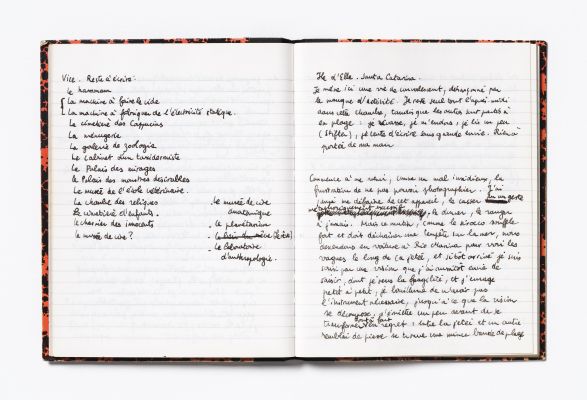 Vice. Reste à écrire.
le hammam
La machine à faire le vide
La machine à fabriquer de l'électricité statique.
Le cimetière des Capucins
La ménagerie
La galerie de zoologie
Le cabinet d'un taxidermiste
Le Palais des mirages
Le Palais des monstres désirables
Le musée de l'école vétérinaire.
La chambre des reliques
Le cimetière d'enfants.
le charnier des innocents
le musée de cire?
- le musée de cire
anatomique
- le planétarium
- le laboratoire
d'anthropologie.
Ile d'Elbe. Santa Catarina.
Je mène ici une vie de convalescent, désarçonné par
le manque d'activité. Je reste seul tout l'après-midi
dans cette chambre, tandis que les autres sont partis à
la plage : je rêvasse, je m'endors, je lis un peu
(Stifter), je tente d'écrire sans grande envie. Rien à
porté de ma main
Commence à me venir, comme un mal insidieux, la
frustration de ne pas pouvoir photographier. J'ai
me défaire de cet appareil, le casser
le donner, le ranger
à jamais. Mais ce matin, comme le sirocco souffle
fort et doit déchaîner une tempête sur la mer, nous
descendons en voiture à Rio Marina pour voir les
vagues le long de la jetée, et sitôt arrivé je suis
saisi par une vision que j'ai aussitôt envie de
saisir, dont je sens la fragilité, et j'enrage
petit à petit, de n'avoir pas
l'instrument nécessaire, jusqu'à ce que la vision
se décompose, j'hésite un peu avant de
transformer en regret : entre la jetée et un autre
remblai de pierre se trouve une mince bande de plage